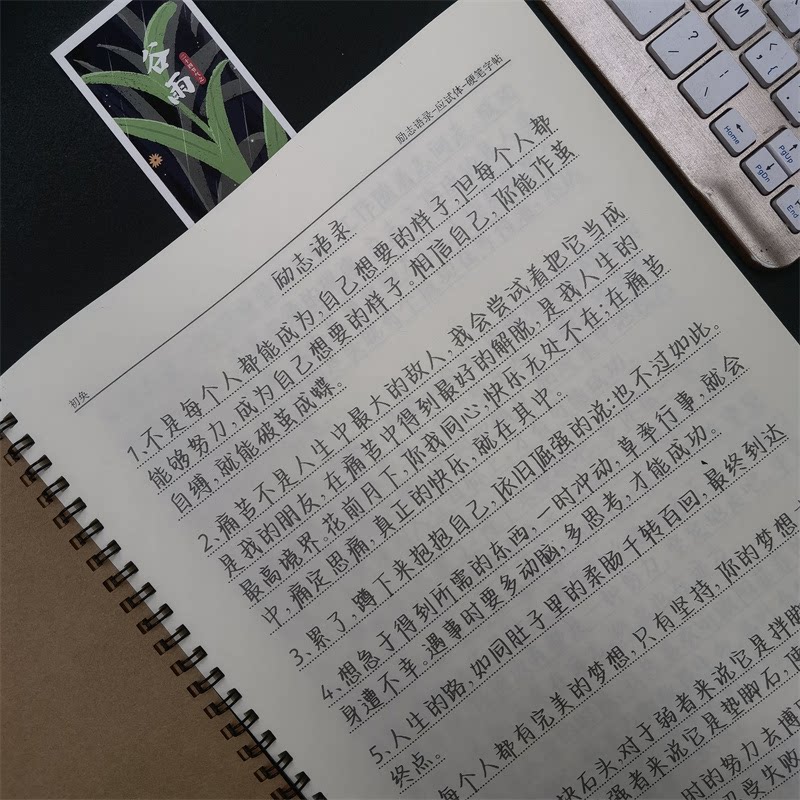 谷雨
励志语录-应试体-硬笔字帖
初奂
励志语录
1、不是每个人都能成为,自己想要的样子,但每个人都
能够努力,成为自己想要的样子。相信自己,你能作茧
自缚,就能破茧成蝶。
2、痛苦不是人生中最大的敌人,我会尝试着把它当成
是我的朋友,在痛苦中得到最好的解脱,是我人生的
最高境界。花前月下,你我同心,快乐无处不在,在痛苦
中,痛定思痛,真正的快乐,就在其中。
3、累了,蹲下来抱抱自己,依旧倔强的说:也不过如此。
4、想急于得到所需的东西,一时冲动,草率行事,就会
身遭不幸。遇事时要多动脑,多思考,才能成功。
5、人生的路,如同肚子里的柔肠千转百回,最终到达
终点。
每个人都有完美的梦想,只有坚持,你的梦想
块石头,对于弱者来说它是拌脚
强者来说它是垫脚石,
时的努力去博
受失败
Home
PgUp
PgDn
End
M
?
/